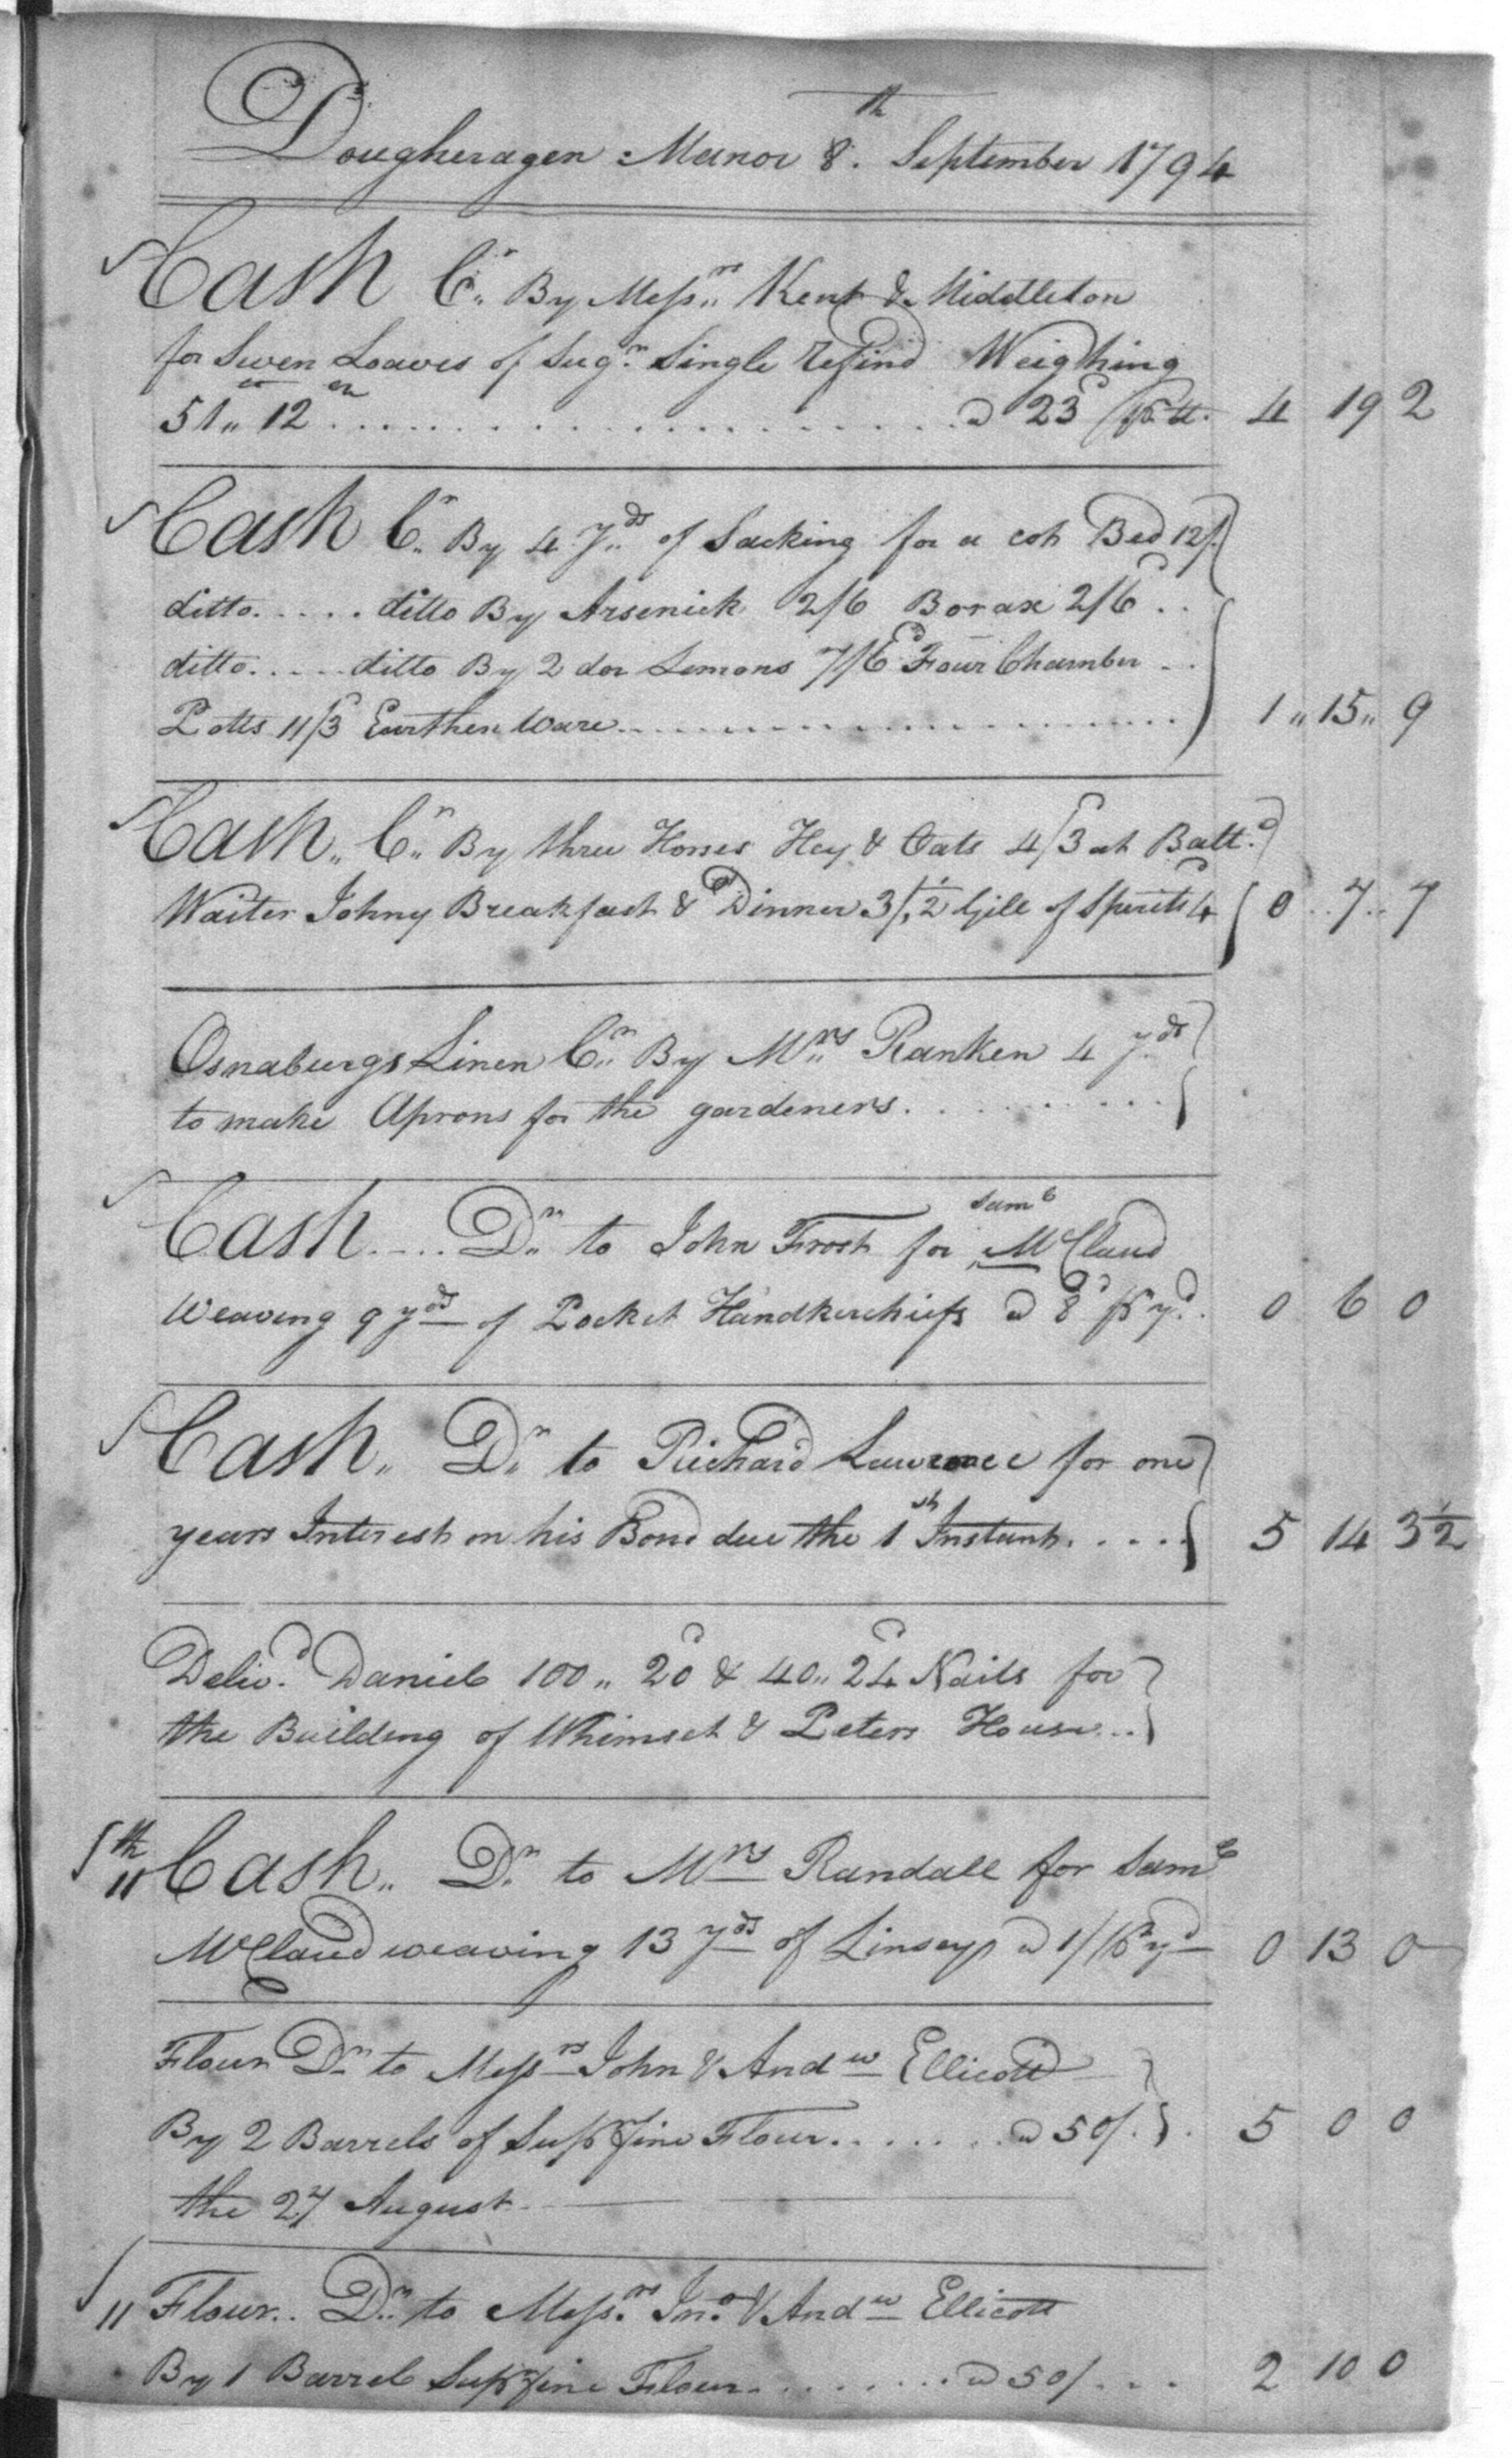 Dougheragen Manor 8.th September 1794
Cash Cr. By Messrs. Kent & Middleton
for Seven Loaves of Sugr. Single Refind Weighing
51 12 oz . . . . . . . . . . a 23d 4 19 2
Cash Cr. By 4 Yds of Sacking for a cot Bed 12/
ditto. . . . . ditto By Arsenick 2/6 Borax 2/6 . .
ditto. . . . . ditto By 2 doz Lemons 7/6 Four Chamber ..
Potts 11/3 Earthen Ware . . . . . . . . . . 1 " 15 " 9
Cash " Cr. By three Horses Hey & Oats 4/3 at Baltd.
Waiter Johny Breakfast & Dinner 3/, 1/2 Gill of Spirits 4 0 .. 7 .. 7
Osnaburgs Linen Cr. By Mrs. Ranken 4 Yds
to make Aprons for the gardeners . . . . . . . .
Cash . . . . Dr. to John Frost for Saml McClaud
Weaving 9 yds of Pocket Handkerchiefs a 8d pr yd. 0 6 0
Cash " Dr. to Richard Lawrence for one
years Interest on his Bond due the 1st Instant . . . . 5 14 3 1/2
Delivd. Daniel 100 " 20d & 40 " 24d Nails for
the Building of Whimset & Peters House . .
11th Cash " Dr. to Mrs Randall for Saml
McClaud weaving 13 yds of Linsey a 1/ pr yd 0 13 0
Flour Dr. to Messrs John & Andw Ellicott
By 2 Barrels of Supfine Flour . . . . . . . a 50/. 5 0 0
the 27 August
11 Flour .. Dr. to Messrs. Jno. & Andw Ellicott
By 1 Barrel Supfine Flour . . . . . . . a 50/ . . . 2 10 0